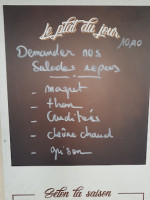 Le plat du jour
10,90
Demander nos
Salades repas
- magret
- thon
- Crudités
- chèvre chaud
- grison
Selon la saison